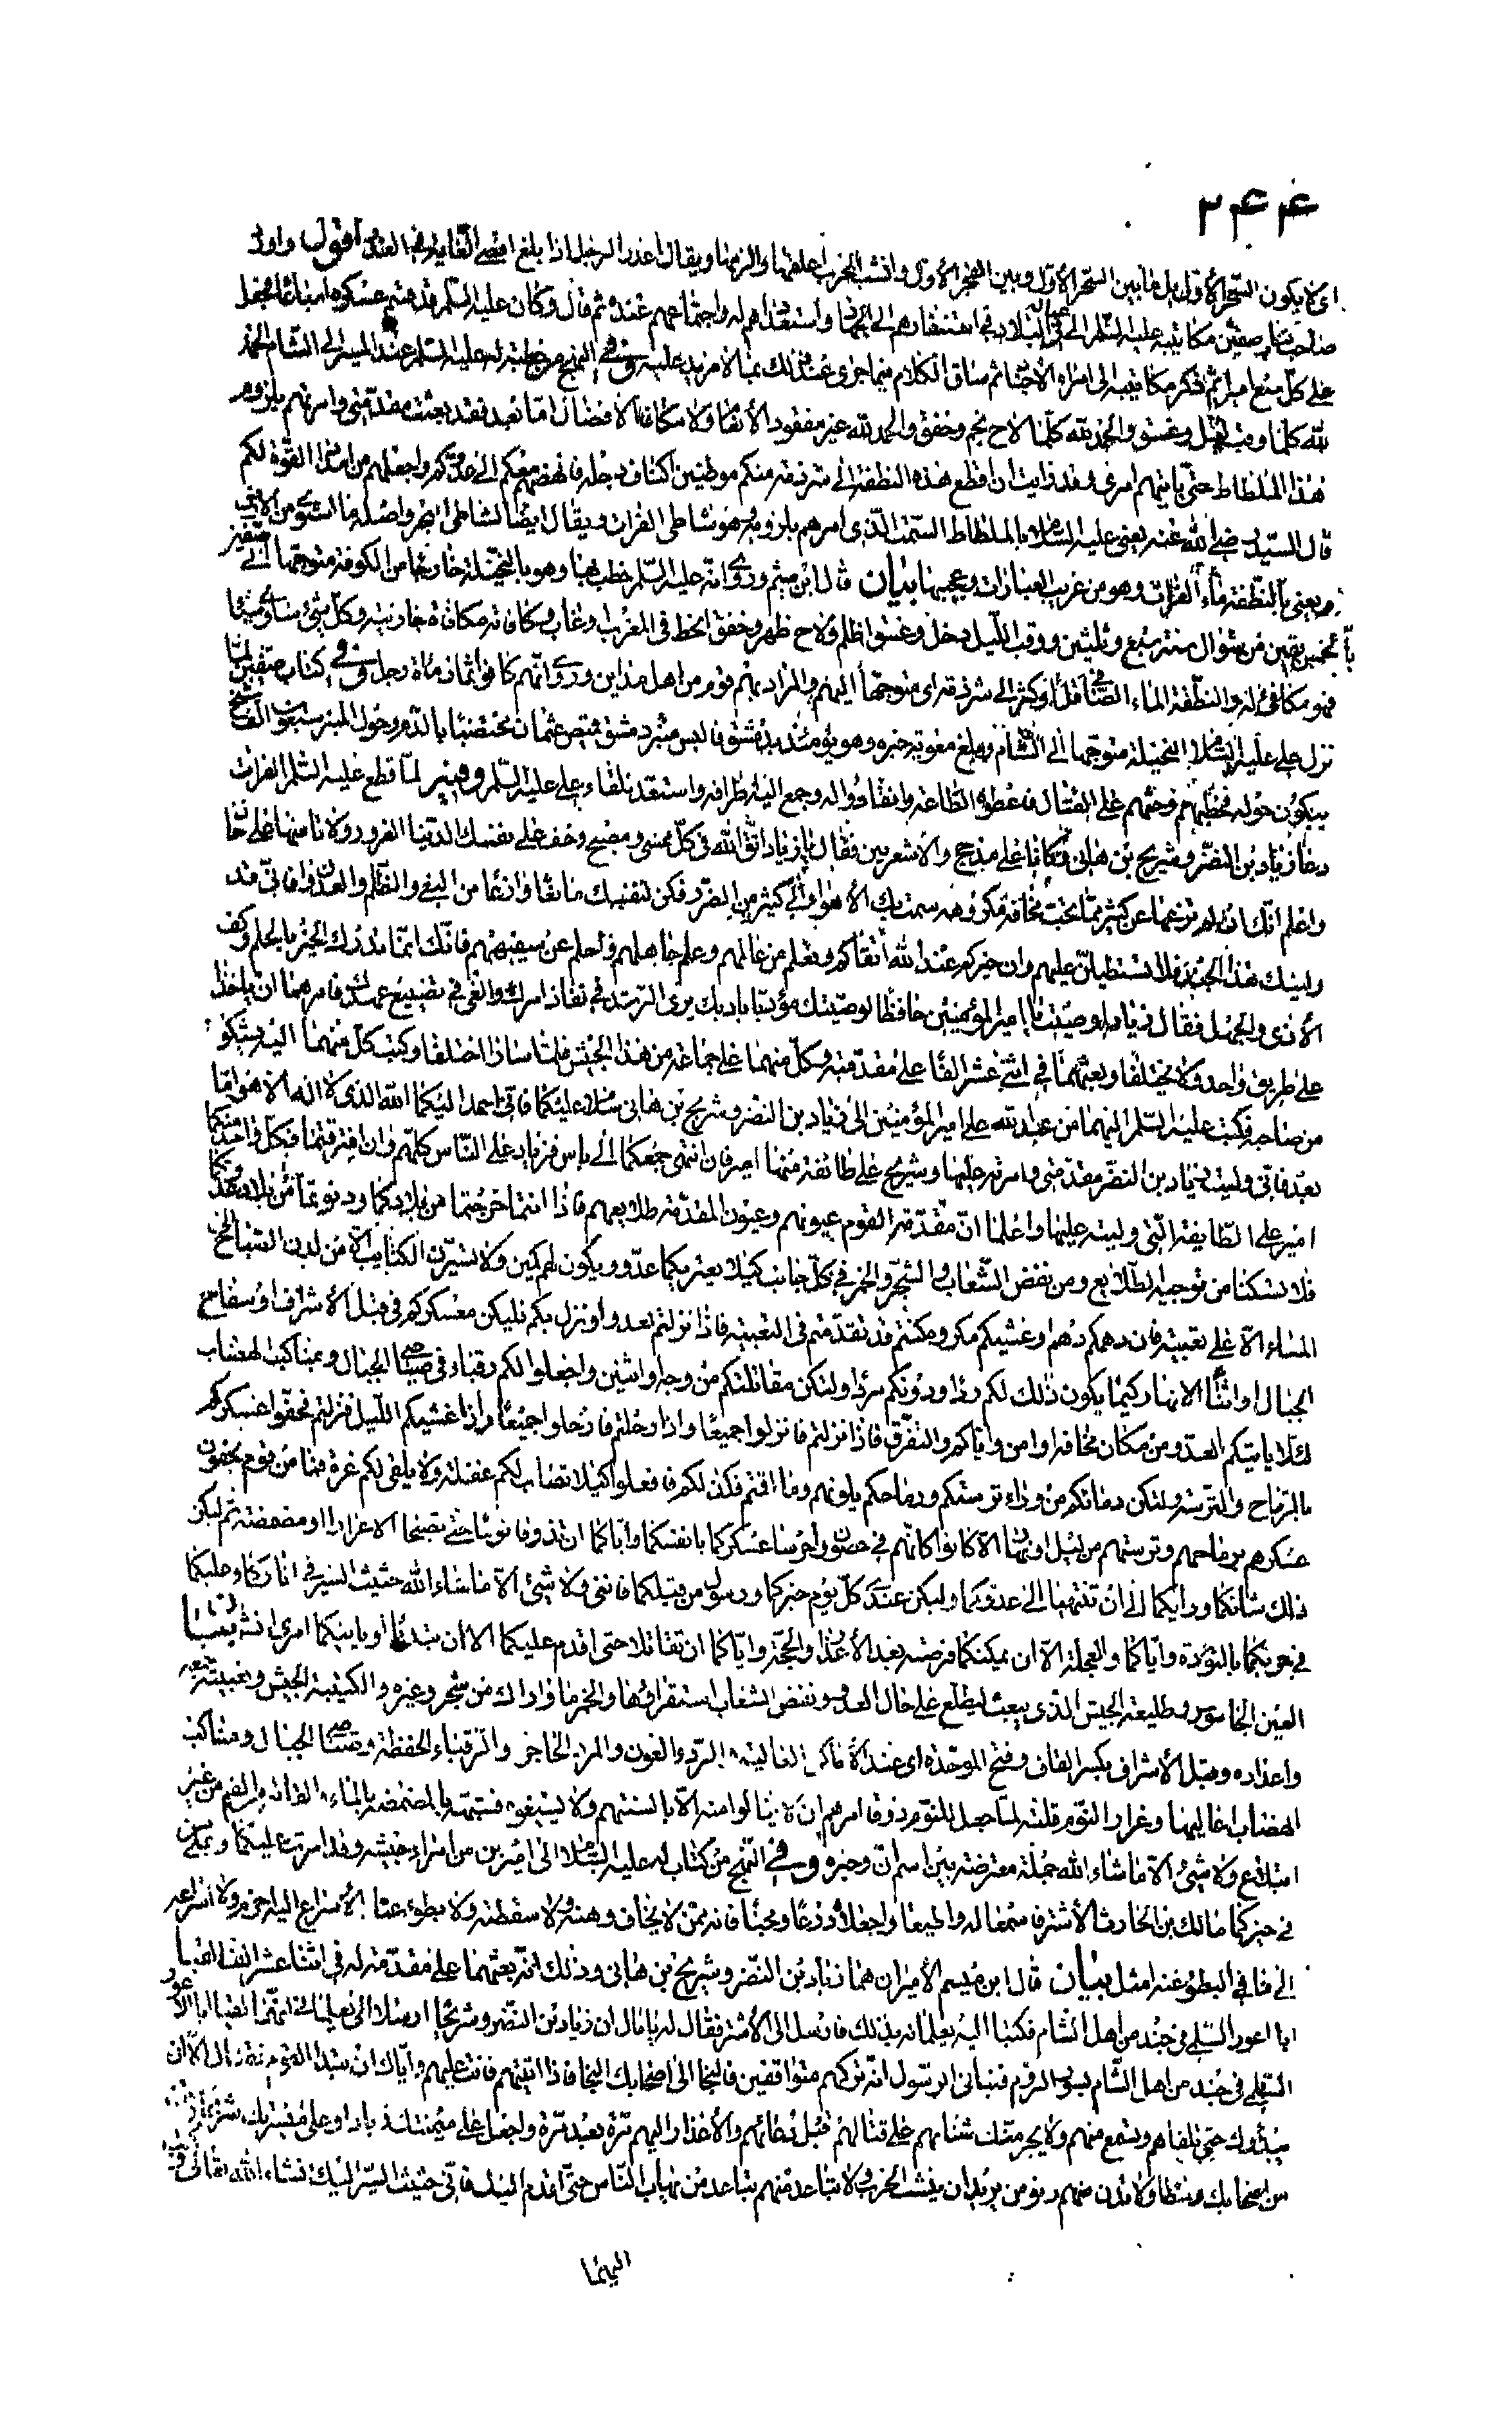 ۲۴۴
اى لا يكون السّحر الأوّل بل ما بين السّحر الأوّل وبين الفجر الأوّل وانشب الحرب اعلقها والزمها ويقال اعذر الرّجل اذا بلغ اقصى الغاية فى العذر اقول واورد
صاحب كتاب صفّين مكاتيبه عليه السّلم الى البلاد فى استنفارهم الى الجهاد واستعدادهم له واجتماعهم عنده ثم قال وكان عليه السّلم قد قسّم عسكره اسباعًا فجعل
على كلّ سبع اميرا ثم ذكر مكاتيبه الى امراء الأجناد ثم ساق الكلام فيما جرى عند ذلك بما لا مزيد عليه وفى النهج من خطبة له عليه السّلم عند المسير الى الشام الحمد
لله كلّما وقب ليل وغسق والحمد لله كلّما لاح نجم وخفق والحمد لله غير مفقود الأنعام ولا مكافا الافضال امّا بعد فقد بعثت مقدّمتى وامرتهم بلزوم
هذا الملطاط حتّى ياتيهم امرى وقد رايت ان اقطع هذه النطفة الى شرذمة منكم موطنين اكناف دجلة فانهضهم معكم الى عدوّكم واجعلهم من امداد القوّة لكم
قال السيّد رضى الله عنه يعنى عليه السّلام بالملطاط السّمت الّذى امرهم بلزومه وهو شاطى الفرات ويقال ايضًا لشاطى البحر واصله ما استوى من الارض
ويعنى بالنّطفة ماء الفرات وهو من غريب العبارات وعجيبها بيان قال ابن ميثم روى انّه عليه السّلم خطب بها وهو بالنخيلة خارجًا من الكوفة متوجّها الى صفّين
لخمس بقين من شوال سنة سبع وثلثين ووقب اللّيل دخل وغسق اظلم ولاح ظهر وخفق النجم خط فى المغرب وغاب وكافاته مكافاة جازيته وكل شئ ساوى شيئا
فهو مكافئ له والنّطفة الماء الصافى قلّ او كثر الى شرذمة اى متوجّها اليهم والمراد بهم قوم من اهل مداين روى انّهم كانوا ثمانمائة رجل وفى كتاب صفّين لمّا
نزل على عليه السّلام النخيلة متوجّها الى الشّام وبلغ معوية خبره وهو يومئذ بدمشق فالبس منبر دمشق قميص عثمان مختضبًا بالدّم وحول المنبر سبعون الف شيخ
يبكون حوله فخطبهم وحثّهم على القتال فاعطوه الطّاعة وانقادوا له وجمع اليه اطرافه واستعدّ بلقاء على عليه السّلم وفيه لمّا قطع عليه السّلم الفرات
دعا زياد بن النضر وشريح بن هانى وكانا على مذحج والأشعريين فقال يا زياد اتّق الله فى كلّ ممسى ومصبح وخف على نفسك الدنيا الغرور ولا تامنها على حال
واعلم انّك ان لم تزعها عن كثير ممّا تحبّ مخافة مكروهه سمت بك الأهواء الى كثير من الضرّ فكن لنفسك مانعًا وازعًا من البغى والظّلم والعدوان فانّى قد
وليتك هذا الجند فلا تستطيلنّ عليهم وان خيركم عند الله اتقاكم وتعلّم من عالمهم وعلّم جاهلهم واحلم عن سفيههم فانّك انّما تدرك الخير بالحلم وكف
الأذى والجهل فقال زياد اوصيت يا امير المؤمنين حافظًا لوصيّتك مؤدّبا بادبك يرى الرشد فى نفاذ امرك والغى فى تضييع عهدك فامرهما ان ياخذا
على طريق واحد ولا يختلفا وبعثهما فى اثنى عشر الفًا على مقدّمته وكلّ منهما على جماعة من هذا الجيش فلمّا سارا اختلفا وكتب كلّ منهما اليه يشكو
من صاحبه فكتب عليه السّلم اليهما من عبد الله على امير المؤمنين الى زياد بن النضر وشريح بن هانى سلام عليكما فانّى احمد اليكما الله الذى لا اله الا هو امّا
بعد فانّى وليت زياد بن النضر مقدّمتى وامرته عليها وشريح على طائفة منها امير فان انتهى جمعكما الى باس فزياد على النّاس كلّهم وان افترقتما فكلّ واحد منكما
امير على الطّايفة الّتى وليته عليها واعلما انّ مقدّمة القوم عيونهم وعيون المقدّمة طلايعهم فاذا انتما خرجتما من بلادكما ودنوتما من بلاد عدوّكما
فلا تسكنا من توجيه الطّلايع ومن نفض الشّعاب والشّجر والخمر فى كلّ جانب كيلا يعتريكما عدوّ ويكون لهم كمين ولا تسيّرنّ الكتايب الّا من لدن الصّباح الى
المساء الّا على تعبية فان دهمكم دهم او غشيكم مكروه كنتم قد تقدّمتم فى التعبية فاذا نزلتم بعدوّ او نزل بكم فليكن معسكركم فى قبل الأشراف او سفاح
الجبال او اثناء الانهار كيما يكون ذلك لكم ردءا ودونكم مردّا ولتكن مقاتلتكم من وجه او اثنين واجعلوا لكم رقباء فى صياصى الجبال وبمناكب الهضاب
لئلّا ياتيكم العدوّ من مكان مخافة او امن وايّاكم والتفرّق فاذا نزلتم فانزلوا جميعا واذا رحلتم فارحلوا جميعًا واذا غشيكم اللّيل فنزلتم فحفّوا عسكركم
بالرّماح والترسة ولتكن رماتكم من وراء ترستكم ورماحكم يلونهم وما اقمتم فكذلكم فافعلوا كيلا تصاب لكم غفلة ولا يلفى لكم غرّة فما من قوم يحفّون
عسكرهم برماحهم وترستهم من ليل او نهار الّا كانوا كانّهم فى حصون واحرسا عسكركما بانفسكما وايّاكما ان تذوقا نوما حتّى تصبحا الا غرارا او مضمضة ثم ليكن
ذلك شانكما ورايكما الى ان تنتهيا الى عدوّكما وليكن عندى كلّ يوم خبركما ورسول من قبلكما فانّى ولا شئ الّا ما شاء الله حثيث السّير فى اثاركما وعليكما
فى حربكما بالتؤدة وايّاكما والعجلة الّا ان يمكنكما فرصة بعد الأعذار والحجّة وايّاكما ان تقاتلا حتى اقدم عليكما الا ان تبدئا او ياتيكما امرى انشاء الله بيان
العين الجاسوس وطليعة الجيش الّذى يبعث ليطّلع على حال العدوّ ونفض الشعاب استقراؤها والخمر ما واراك من شجر وغيره والكتيبة الجيش وتعبيته جمعه
واعداده وقبل الأشراف بكسر القاف وفتح الموحّدة اى عند الأماكن العالية والردء العون والمردّ الحاجز والرقباء الحفظة وصياصى الجبال ومناكب
الهضاب اعاليها وغرار النوم قلّته لمّا جعل للنوم ذوقا امرهم ان لا ينالوا منه الّا بالسنتهم ولا يسيغوه فشبّهه بالمضمضة بالماء والقائه من الفم من غير
ابتلاع ولا شئ الّا ما شاء الله جملة معترضة بين اسم انّ وخبره وفى النّهج من كتاب له عليه السّلام الى اميرين من امراء جيشه وقد امّرت عليكما وعلى من
فى حيّزكما مالك بن الحارث الأشتر فاسمعا له واطيعا واجعلاه درعًا ومجنًّا فانه ممّن لا يخاف وهنه ولا سقطته ولا بطوئه عمّا الأسراع اليه احزم ولا اسراعه
الى ما فى البطوء عنه امثل بيان قال ابن ميسم الأميران هما زياد بن النضر وشريح بن هانى وذلك انّه بعثهما على مقدّمة له فى اثنا عشر الفا لقيا
ابا اعور السّلمى فى جند من اهل الشام فكتبا اليه يعلمانه بذلك فارسل الى الأشتر فقال له يا مال ان زياد بن النّضر وشريحا ارسلا الىّ يعلمانى انّهما لقيا ابا الأعور
السّلمى فى جند من اهل الشّام بسور الروم فنبّانى الرّسول انّه تركهم متواقفين فالنجا الى اصحابك النجا فاذا اتيتهم فانت عليهم وايّاك ان تبدا القوم بقتال الّا ان
يبدؤك حتى تلقاهم وتسمع منهم ولا يجرمنّك شنانهم على قتالهم قبل دعائهم والأعذار اليهم مرّة بعد مرّة واجعل على ميمنتك زيادا وعلى ميسرتك شريحا وقف
من اصحابك وسطا ولا تدن منهم دنوّ من يريد ان ينشب الحرب ولا تباعد منهم تباعد من يهاب النّاس حتّى اقدم اليك فانّى حثيث السّير اليك انشاء الله تعالى
اليهما